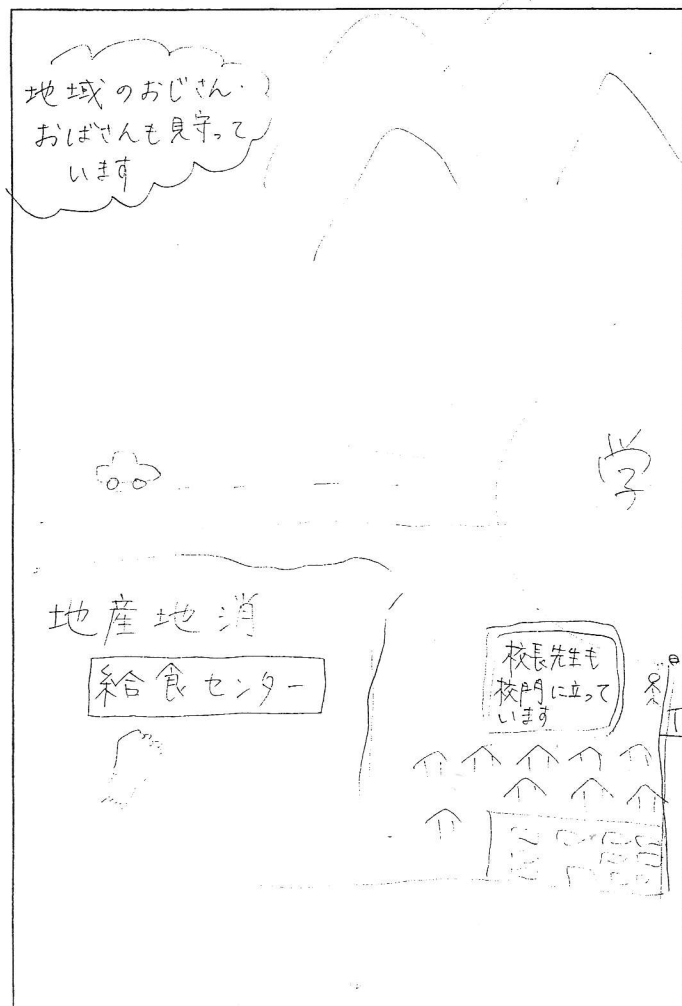 地域のおじさん・
おばさんも見守って
います
学
地産地消
給食センター
校長先生も
校門に立って
います